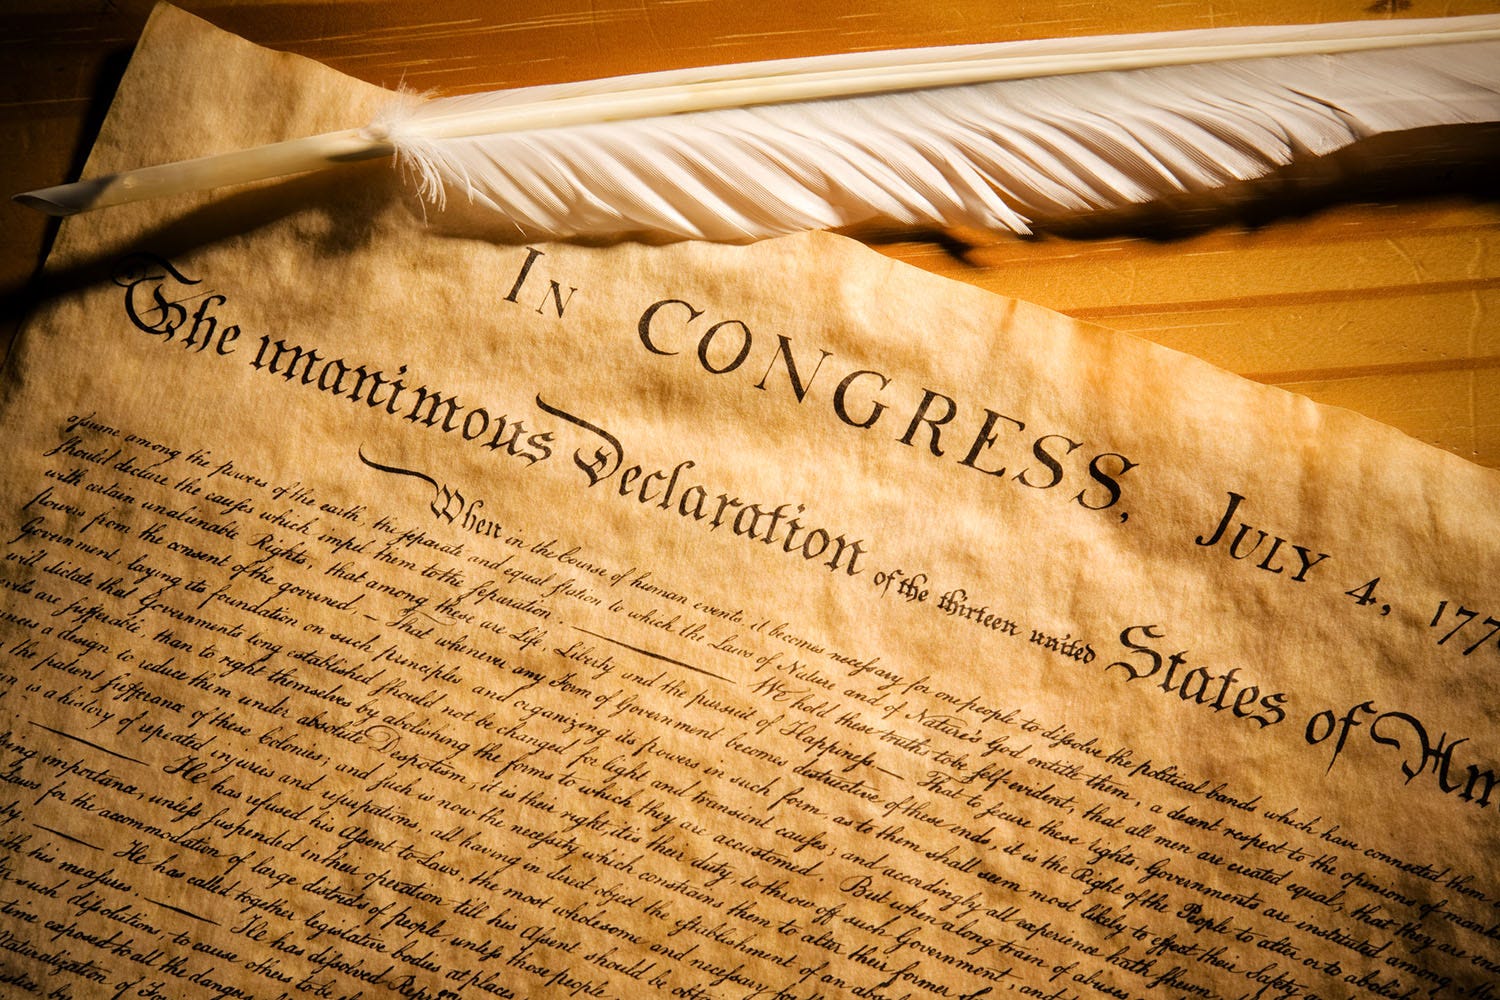 In CONGRESS, July 4, 177
The unanimous Declaration of the thirteen united States of Am
When in the Course of human events, it becomes necessary for one people to dissolve the political bands which have connected them
assume among the powers of the earth, the separate and equal station to which the Laws of Nature and of Nature's God entitle them, a decent respect to the opinions of mank
should declare the causes which impel them to the separation. We hold these truths to be self-evident, that all men are created equal, that they are end
with certain unalienable Rights, that among these are Life, Liberty and the pursuit of Happiness.— That to secure these rights, Governments are instituted among
powers from the consent of the governed,— That whenever any Form of Government becomes destructive of these ends, it is the Right of the People to alter or to abolish
Government, laying its foundation on such principles and organizing its powers in such form, as to them shall seem most likely to effect their Safety
will dictate that Governments long established should not be changed for light and transient causes; and accordingly all experience hath shewn
are sufferable, than to right themselves by abolishing the forms to which they are accustomed. But when a long train of abuses
a design to reduce them under absolute Despotism, it is their right, it is their duty, to throw off such Government, and
the patient sufferance of these Colonies; and such is now the necessity which constrains them to alter their former
is a history of repeated injuries and usurpations, all having in direct object the establishment of an
He has refused his Assent to Laws, the most wholesome and necessary for
importance, unless suspended in their operation till his Assent should be
Laws for the accommodation of large districts of people, unless those people
He has called together legislative bodies at places
his measures. He has dissolved
such dissolutions, to cause others to be
time exposed to all the dangers
Naturalization of